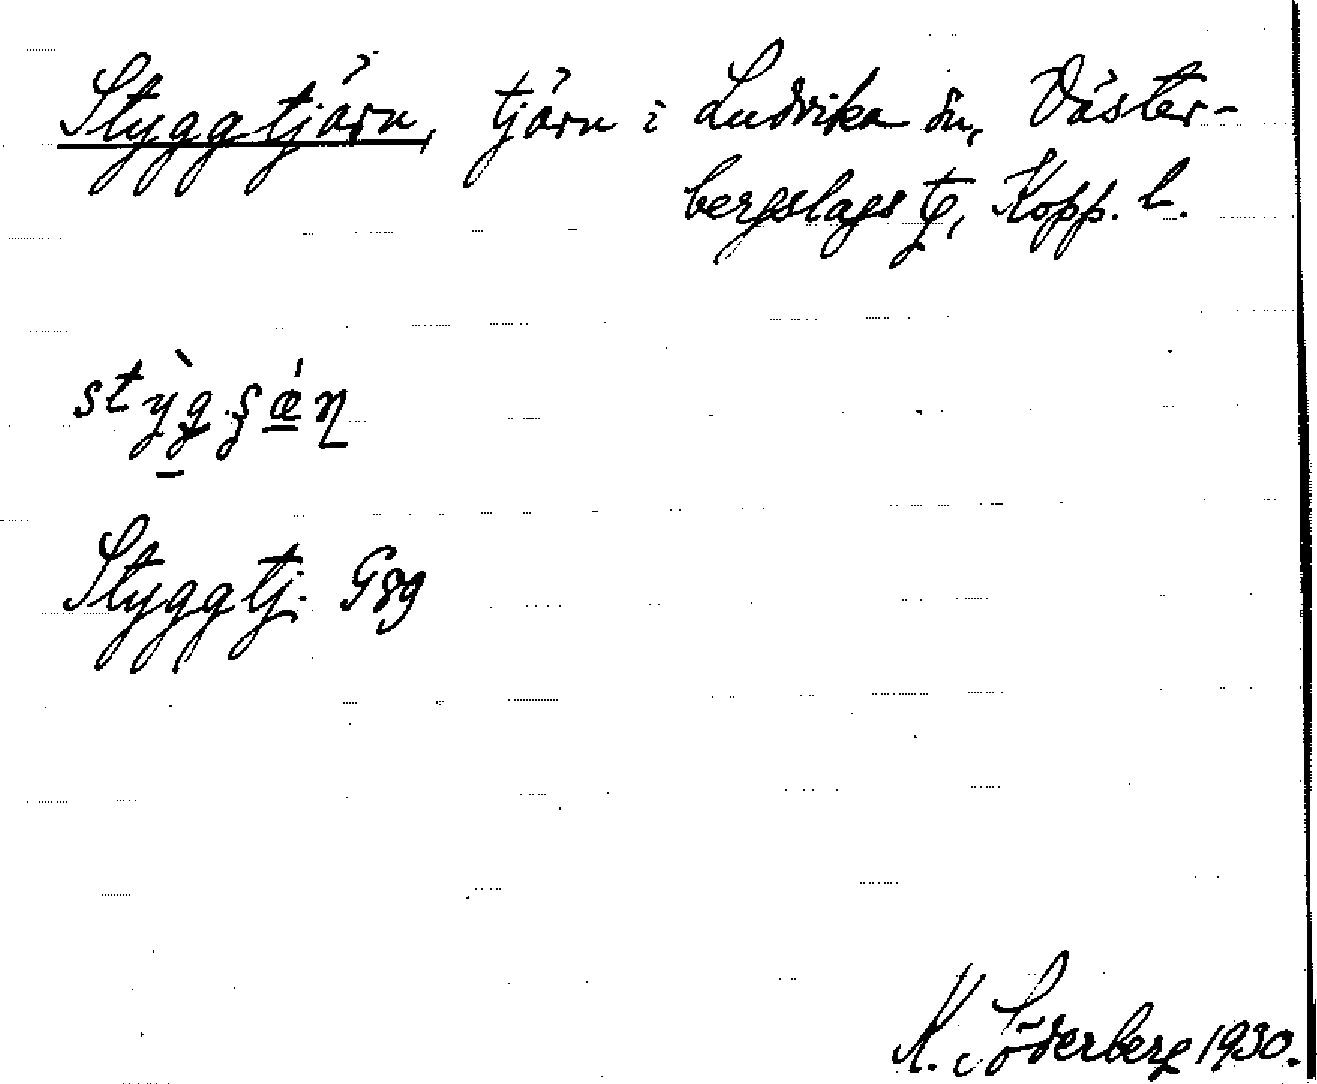 Styggtjärn, tjärn i Ludvika sn, Väster-
bergslags tg, Kopp. l.
Styggtj. Gsg
K. Söderberg 1930.